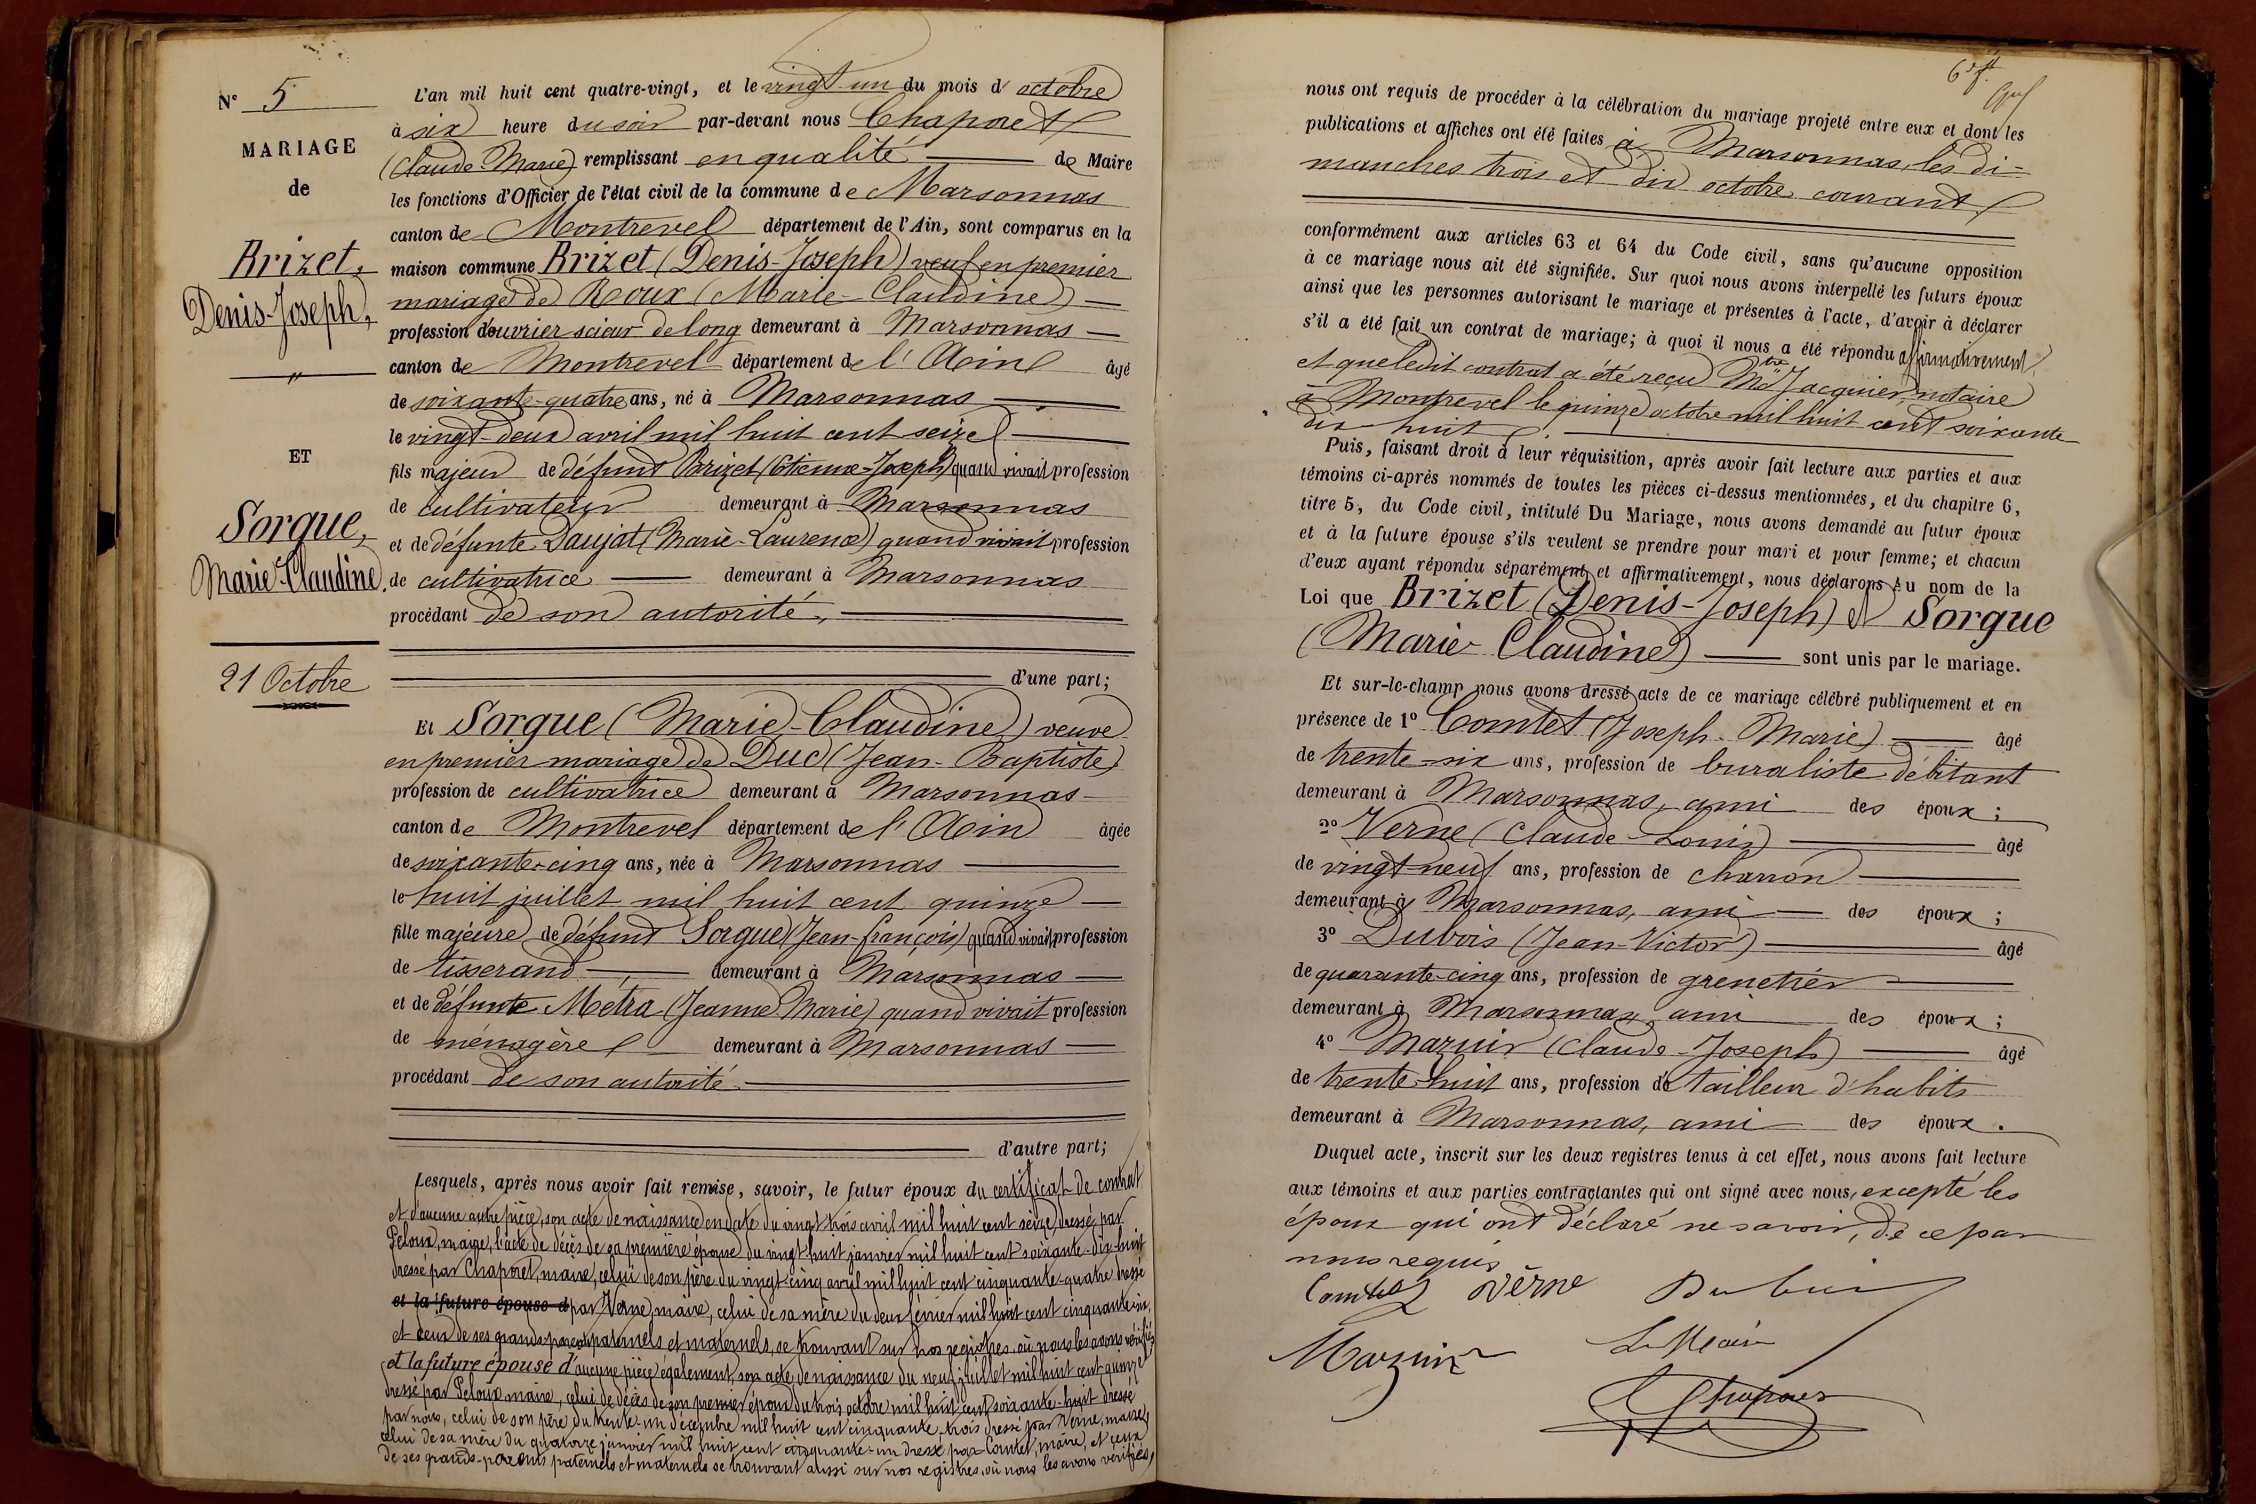 N° 5
MARIAGE
de
Brizet,
Denis-Joseph,
"
ET
Sorgue,
Marie-Claudine.
21 Octobre
L'an mil huit cent quatre-vingt, et le vingt-un du mois d'octobre
à six heure du soir par-devant nous Chaponet
(Claude-Marie) remplissant en qualité de Maire
les fonctions d'Officier de l'état civil de la commune de Marsonnas
canton de Montrevel département de l'Ain, sont comparus en la
maison commune Brizet (Denis-Joseph) veuf en premier
mariage de Roux (Marie-Claudine)
profession d'ouvrier scieur de long demeurant à Marsonnas
canton de Montrevel département de l'Ain âgé
de soixante-quatre ans, né à Marsonnas
le vingt-deux avril mil huit cent seize
fils majeur de défunt Brizet (Etienne-Joseph) quand vivait profession
de cultivateur demeurant à Marsonnas
et de défunte Daujat (Marie-Laurence) quand vivait profession
de cultivatrice demeurant à Marsonnas
procédant de son autorité,
d'une part;
Et Sorgue (Marie-Claudine) veuve
en premier mariage de Duc (Jean-Baptiste)
profession de cultivatrice demeurant à Marsonnas
canton de Montrevel département de l'Ain âgée
de soixante-cinq ans, née à Marsonnas
le huit juillet mil huit cent quinze
fille majeure de défunt Sorgue (Jean-françois) quand vivait profession
de tisserand demeurant à Marsonnas
et de défunte Metra (Jeanne Marie) quand vivait profession
de ménagère demeurant à Marsonnas
procédant de son autorité.
d'autre part;
Lesquels, après nous avoir fait remise, savoir, le futur époux du certificat de contrat
et d'aucune autre pièce, son acte de naissance en date du vingt trois avril mil huit cent seize, dressé par
Peloux, maire, l'acte de décès de sa première épouse du vingt huit janvier mil huit cent soixante-dix-huit
dressé par Chaponet, maire, celui de son père du vingt cinq avril mil huit cent cinquante-quatre dressé
et la future épouse d par Verne, maire, celui de sa mère du deux février mil huit cent cinquante-six,
et ceux de ses grands parents paternels et maternels, se trouvant sur nos registres où nous les avons vérifiés
et la future épouse d'aucune pièce également, son acte de naissance du neuf juillet mil huit cent quinze
dressé par Peloux maire, celui de décès de son premier époux du trois octobre mil huit cent soixante-huit dressé
par nous, celui de son père du trente-un décembre mil huit cent cinquante-trois dressé par Verne, maire,
celui de sa mère du quatorze janvier mil huit cent cinquante-un dressé par Comtet, maire, et ceux
de ses grands-parents paternels et maternels se trouvant aussi sur nos registres, où nous les avons vérifiés,
nous ont requis de procéder à la célébration du mariage projeté entre eux et dont les
publications et affiches ont été faites à Marsonnas, les di=
manches trois et dix octobre courant
conformément aux articles 63 et 64 du Code civil, sans qu'aucune opposition
à ce mariage nous ait été signifiée. Sur quoi nous avons interpellé les futurs époux
ainsi que les personnes autorisant le mariage et présentes à l'acte, d'avoir à déclarer
s'il a été fait un contrat de mariage; à quoi il nous a été répondu affirmativement
et que ledit contrat a été reçu Mtre Jacquier, notaire
à Montrevel le quinze octobre mil huit cent soixante
dix huit.
Puis, faisant droit à leur réquisition, après avoir fait lecture aux parties et aux
témoins ci-après nommés de toutes les pièces ci-dessus mentionnées, et du chapitre 6,
titre 5, du Code civil, intitulé Du Mariage, nous avons demandé au futur époux
et à la future épouse s'ils veulent se prendre pour mari et pour femme; et chacun
d'eux ayant répondu séparément et affirmativement, nous déclarons au nom de la
Loi que Brizet (Denis-Joseph) et Sorgue
(Marie-Claudine) sont unis par le mariage.
Et sur-le-champ nous avons dressé acte de ce mariage célébré publiquement et en
présence de 1° Comtet (Joseph-Marie) âgé
de trente-six ans, profession de buraliste débitant
demeurant à Marsonnas, ami des époux;
2° Verne (Claude-Louis) âgé
de vingt-neuf ans, profession de charron
demeurant à Marsonnas, ami des époux;
3° Dubois (Jean-Victor) âgé
de quarante-cinq ans, profession de grenetier
demeurant à Marsonnas, ami des époux;
4° Mazuir (Claude-Joseph) âgé
de trente-huit ans, profession de tailleur d'habits
demeurant à Marsonnas, ami des époux.
Duquel acte, inscrit sur les deux registres tenus à cet effet, nous avons fait lecture
aux témoins et aux parties contractantes qui ont signé avec nous, excepté les
époux qui ont déclaré ne savoir, de ce par
nous requis
Comtet Verne Dubois
Mazuir Le Maire
Chaponet